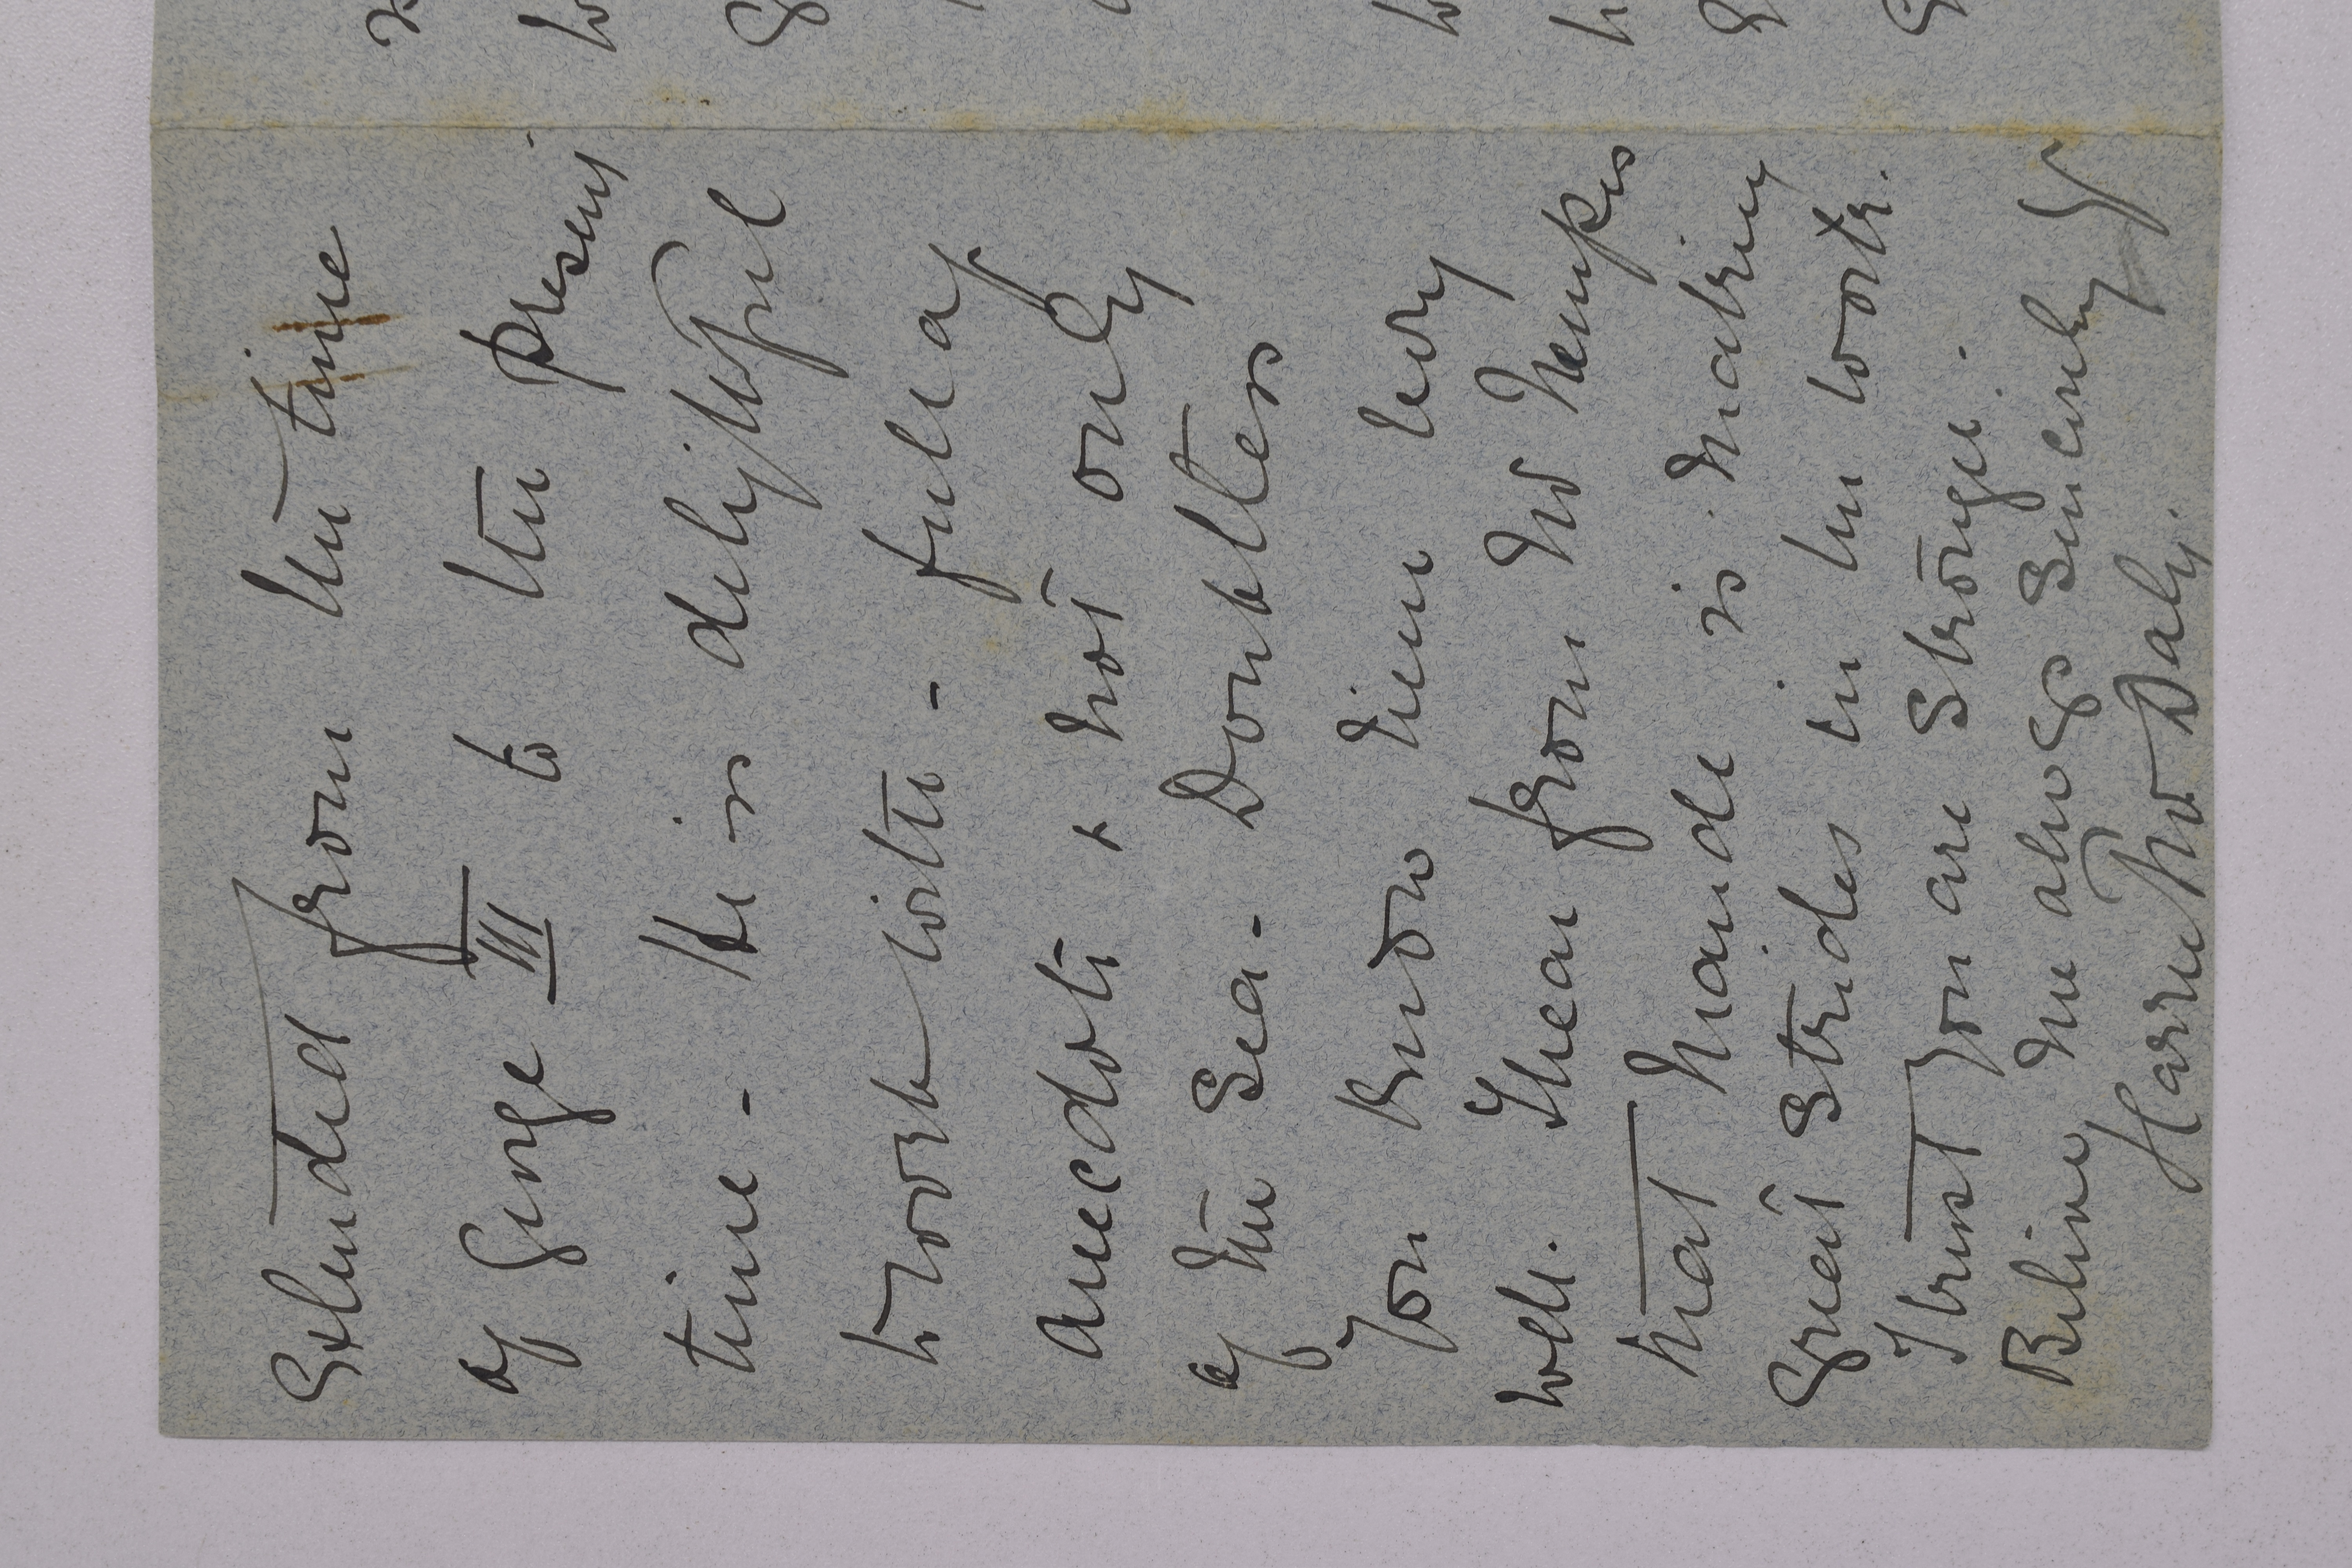 Extended from the time
of George III to the present
time - He is delightful
to work with - full of
anecdote & not only
of the Sea - Doubtless
you know him very
well. I hear from Mr Kempes
that Maude is making
great strides in her work.
I trust you are stronger.
Believe me always Sincerely Yrs
Harriet Daly.